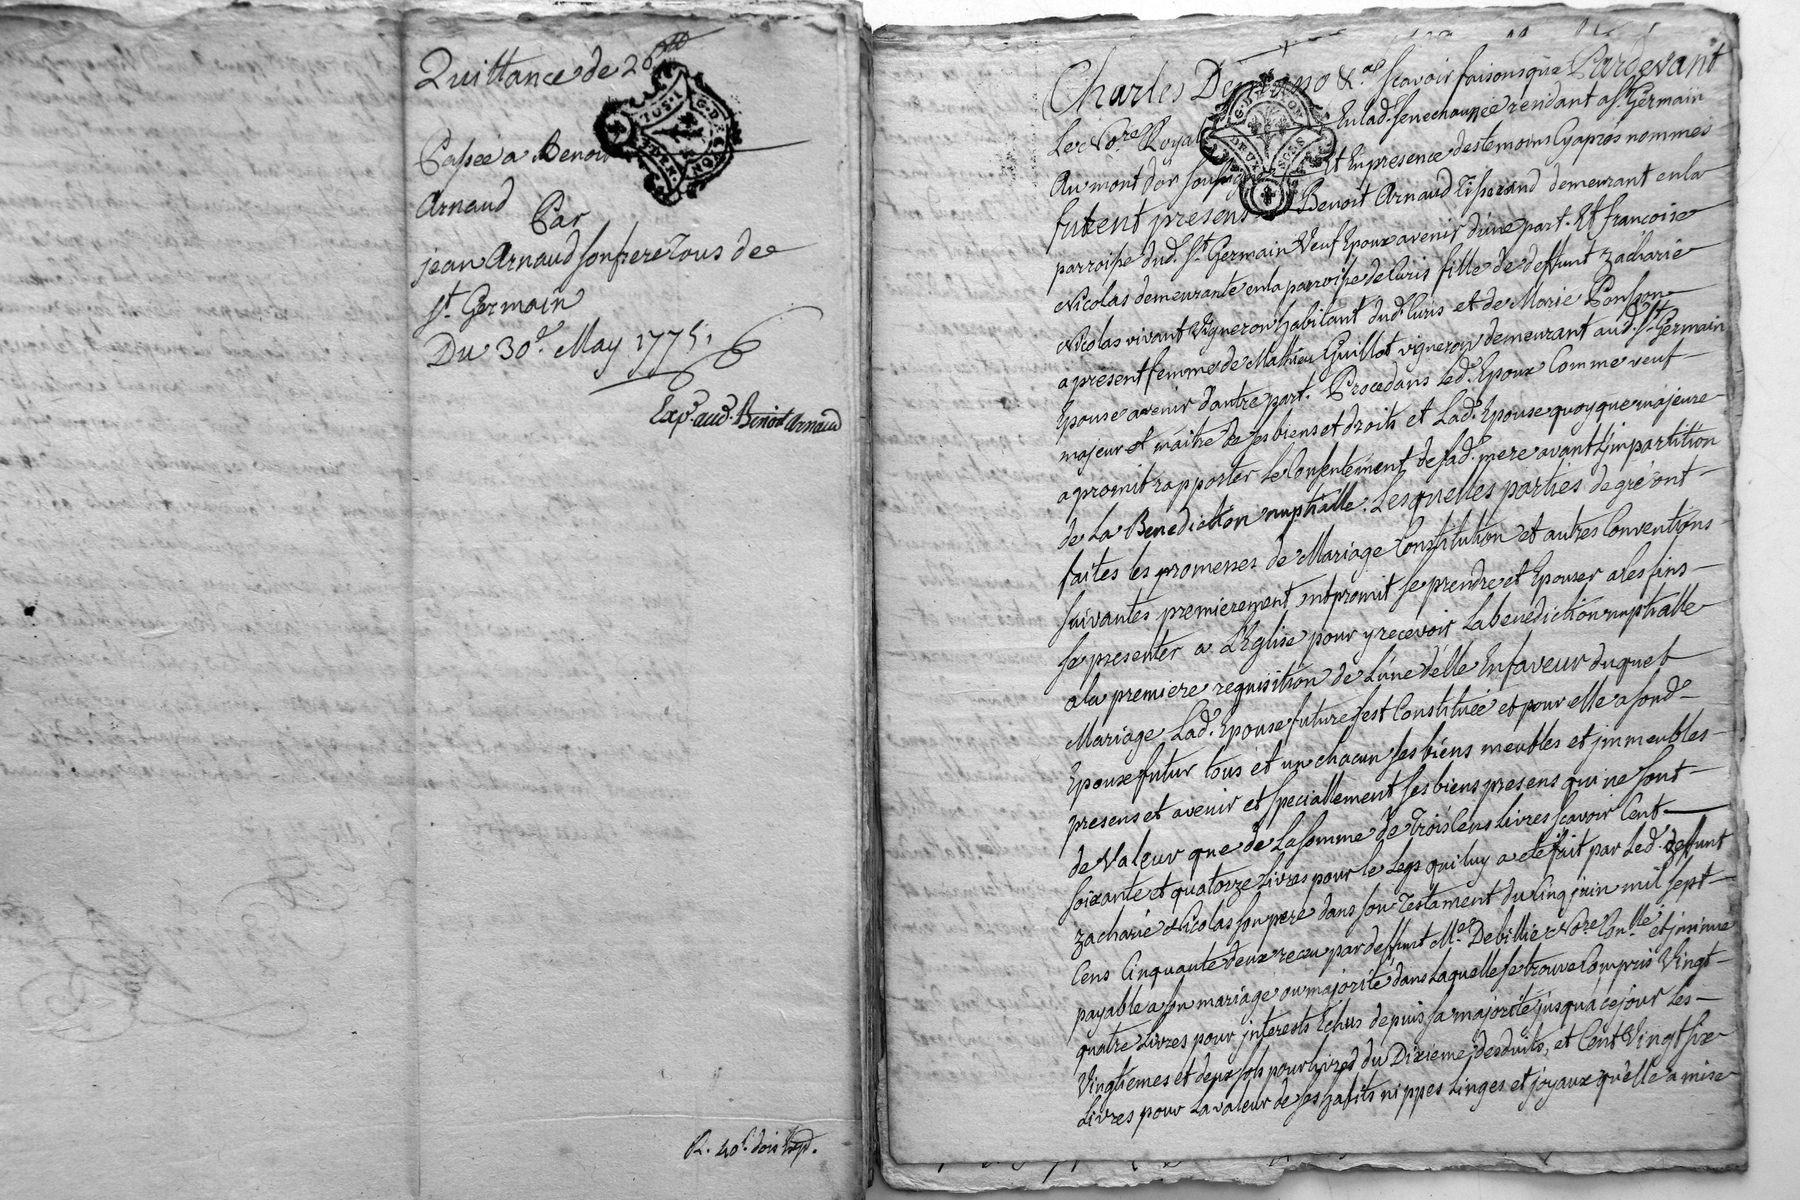 Quittance de 26
Passée a Benoit
Arnaud
Par
jean Arnaud son frere tous de
St. Germain
Du 30e. May 1775.
Exp. aud. Benoit Arnaud
R. 40s. dois Exp.
Charles De &.a scavoir faisons que Pardevant
Le No.re Royal En lad. senechaussée rendant a St. Germain
Au mont d'or soussigné Et En presence des temoins Cy apres nommés
furent presens Benoit Arnaud Tisserand demeurant en la
parroisse dud. St. Germain Veuf Epoux avenir d'une part. Et françoise
Nicolas demeurante en la parroisse de Curis fille de deffunt zacharie
Nicolas vivant Vigneron habitant dud. Curis et de Marie Ponson
a present femme de Mathieu Guillot vigneron demeurant aud. St. Germain
Epouse avenir d'autre part. Procedans Led. Epoux Comme veuf
majeur et maitre de ses biens et droits et Lad. Epouse quoyque majeure
a promit rapporter Le Consentement de sad. mere avant L'impartition
de La Benediction nuptialle. Lesquelles parties de gré ont
faites les promesses de Mariage Constitution et autres Conventions
suivantes premierement ont promit se prendre et Epouser a les fins
se presenter a L'Eglise pour y recevoir La benediction nuptialle
a la premiere requisition de L'une d'elle En faveur duquel
Mariage Lad. Epouse future s'est Constituée et pour elle a fond.
Epoux futur tous et un chacun ses biens meubles et jmmeubles
presens et avenir et speciallement ses biens presens qui ne sont
de Valeur que de La somme de Trois Cens Livres scavoir Cent
soixante et quatorze Livres pour le Legs qui luy a eté fait par Led. deffunt
zacharie Nicolas son pere dans son Testament du Cinq juin mil sept
Cens Cinquante deux receu par deffunt Me. Debillier No.re et
payable a son mariage ou majorité dans Laquelle se trouve Compris Vingt
quatre Livres pour jnterests Echus depuis sa majorité jusqu'a ce jour Les
Vingtiemes et deux sols pour Livres du Dixieme desduits, et Cent Vingt six
Livres pour La valeur de ses habits nippes Linges et joyaux qu'elle a mise